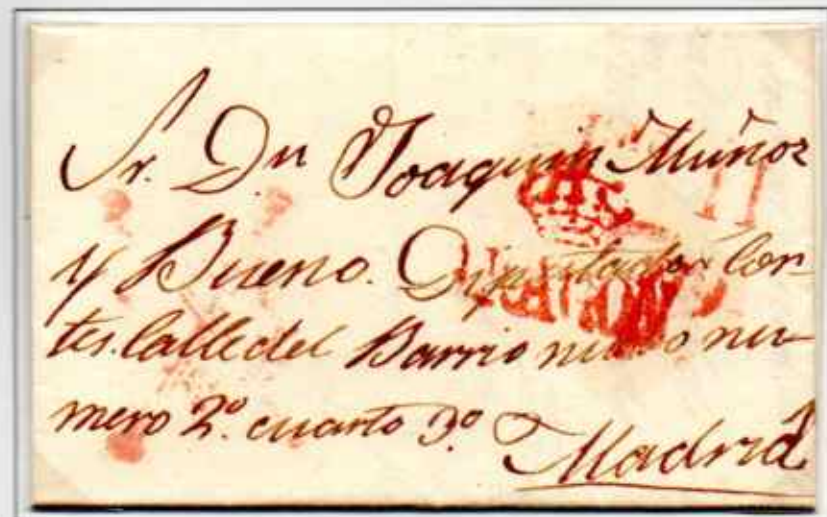 Sr. Dn Joaquin Muñoz
y Bueno. Diputado a Cor-
tes. Calle del Barrio nuevo nu-
mero 2º. cuarto 3º
Madrid
11